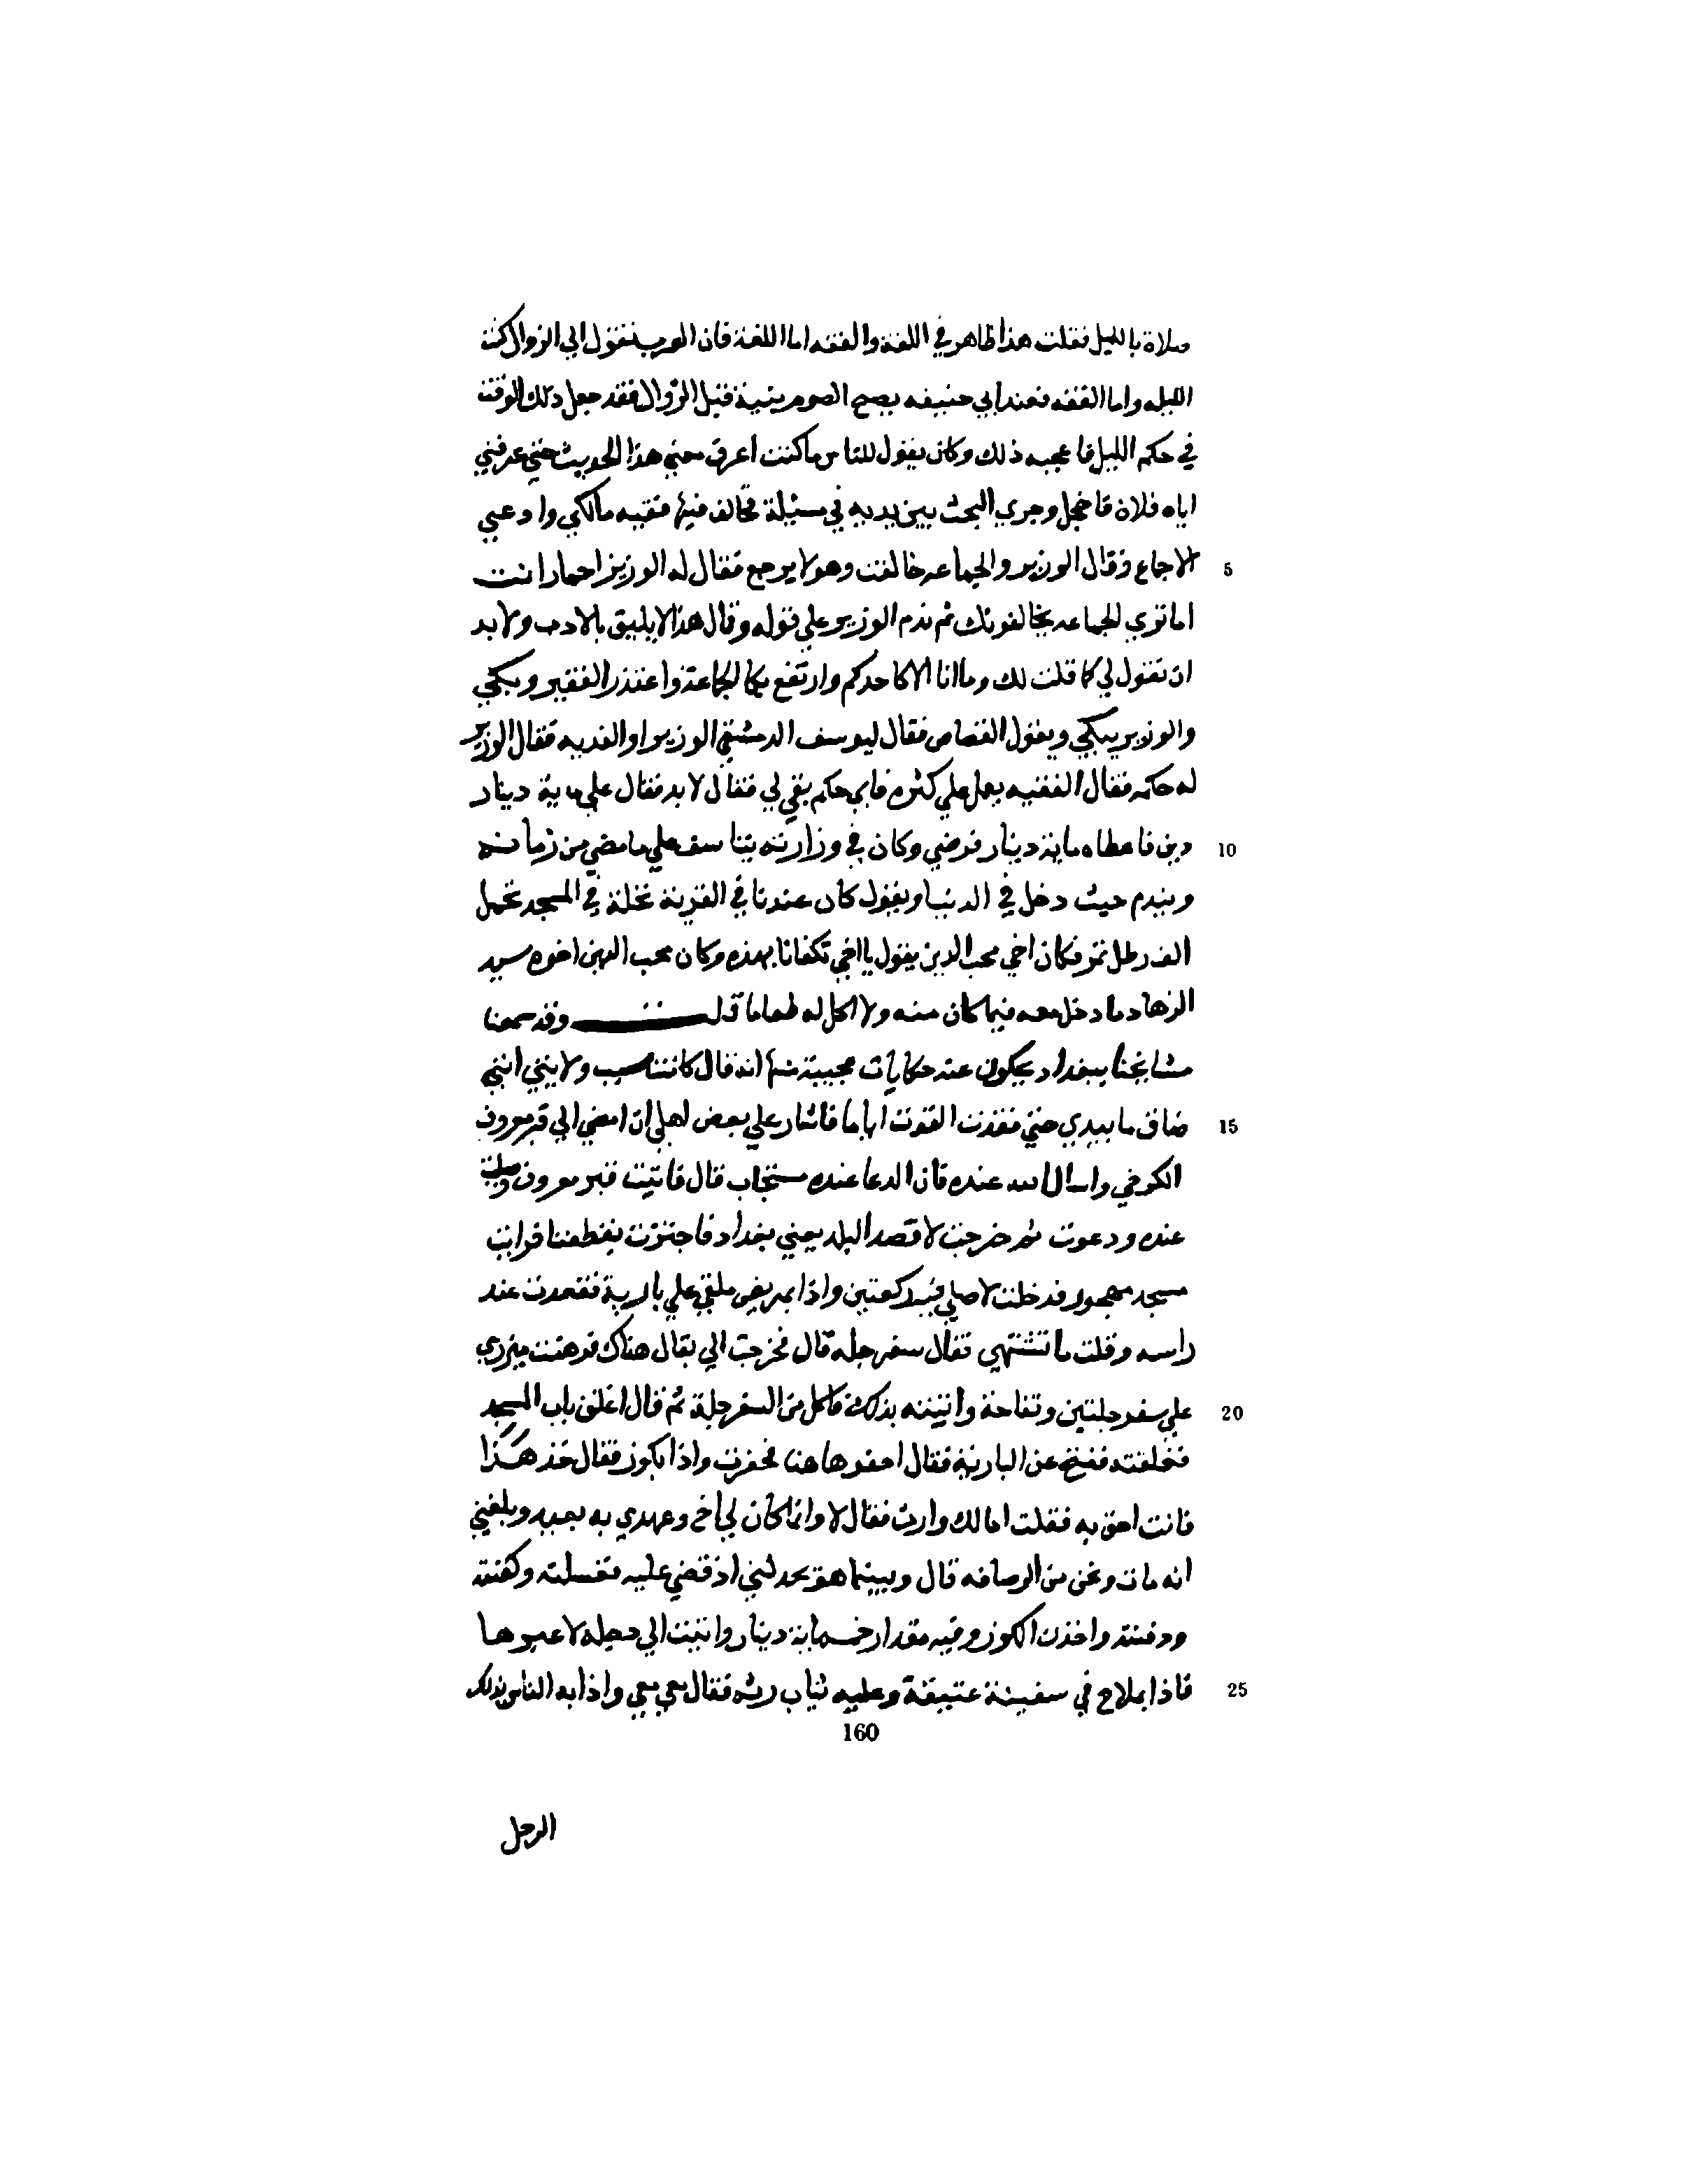 صلاة بالليل فقلت هذا ظاهر في اللغة والفقه اما اللغة فان العرب تقول الي الزوال كنت
الليله واما الفقه فعند ابي حنيفه يصح الصوم بنية قبل الزوال فقد جعل ذلك الوقت
في حكم الليل فاعجبه ذلك وكان يقول للناس ما كنت اعرف معني هذا الحديث حتي عرفني
اياه فلان فاخجل وجري البحث بين يديه في مسئلة فخالف فيها فقيه مالكي وادعي
5 الاجماع فقال الوزير والجماعه خالفت وهو لا يرجع فقال له الوزيز احمار انت
اما تري الجماعه يخالفونك ثم ندم الوزير علي قوله وقال هذا لا يليق بالادب ولا بد
ان تقول لي كما قلت لك وما انا الا كاحدكم وارتفع بكا الجماعة واعتذر الفقير ويبكي
والوزير يبكي ويقول القصاص فقال ليوسف الدمشقي الوزير او الفديه فقال الوزير
له حكمه فقال الفقيه يعمل علي كثره فاي حكم بقي لي فقال لا بد فقال علي ماية دينار
10 دين فاعطاه ماية دينار فرضي وكان في وزارته يتاسف علي ما مضي من زمانه
ويندم حيث دخل في الدنيا ويقول كان عندنا في القرية نخلة في المسجد تحمل
الف رطل تمر فكان اخي محب الدين يقول يا اخي تكفانا بهذه وكان محب الدين اخوه سيد
الزهاد ما دخل معه فيما كان منه ولا اكل له طعاما قال وقد سمعنا
مشايخنا ببغداد يحكون عنه حكايات عجيبة منها انه قال كانت نصيب ولايتي انني
15 ضاق ما بيدي حتي فقدت القوت اياما فاشار علي بعض اهلي ان امضي الي قبر معروف
الكرخي واسال الله عنده فان الدعا عنده مستجاب قال فاتيت قبر معروف وصليت
عنده ودعوت ثم خرجت لاقصد البلد يعني بغداد فاجتزت بقطفتا فرايت
مسجد مهجور فدخلت لاصلي فيه ركعتين واذا بمريض ملقي علي بارية فقعدت عند
راسه وقلت ما تشتهي فقال سفرجله قال فخرجت الي بقال هناك فرهنت ميزري
20 علي سفرجلتين وتفاحة واتيته بذلك فاكل من السفرجلة ثم قال اغلق باب المسجد
فغلقته ففتح عن البارية فقال احفر هاهنا فحفرت واذا بكوز فقال خذ هذا
فانت احق به فقلت اما لك وارث فقال لا وانما كان لي اخ وعهدي به بعيد وبلغني
انه مات ونحن من الرصافه قال وبينما هو يحدثني اذ قضي عليه فغسلته وكفنته
ودفنته واخذت الكوز وفيه مقدار خمسماية دينار واتيت الي دجله لاعبرها
25 فاذا بملاح في سفينة عتيقة وعليه ثياب رثه فقال معي معي واذا به الناس بذلك
160
الرجل